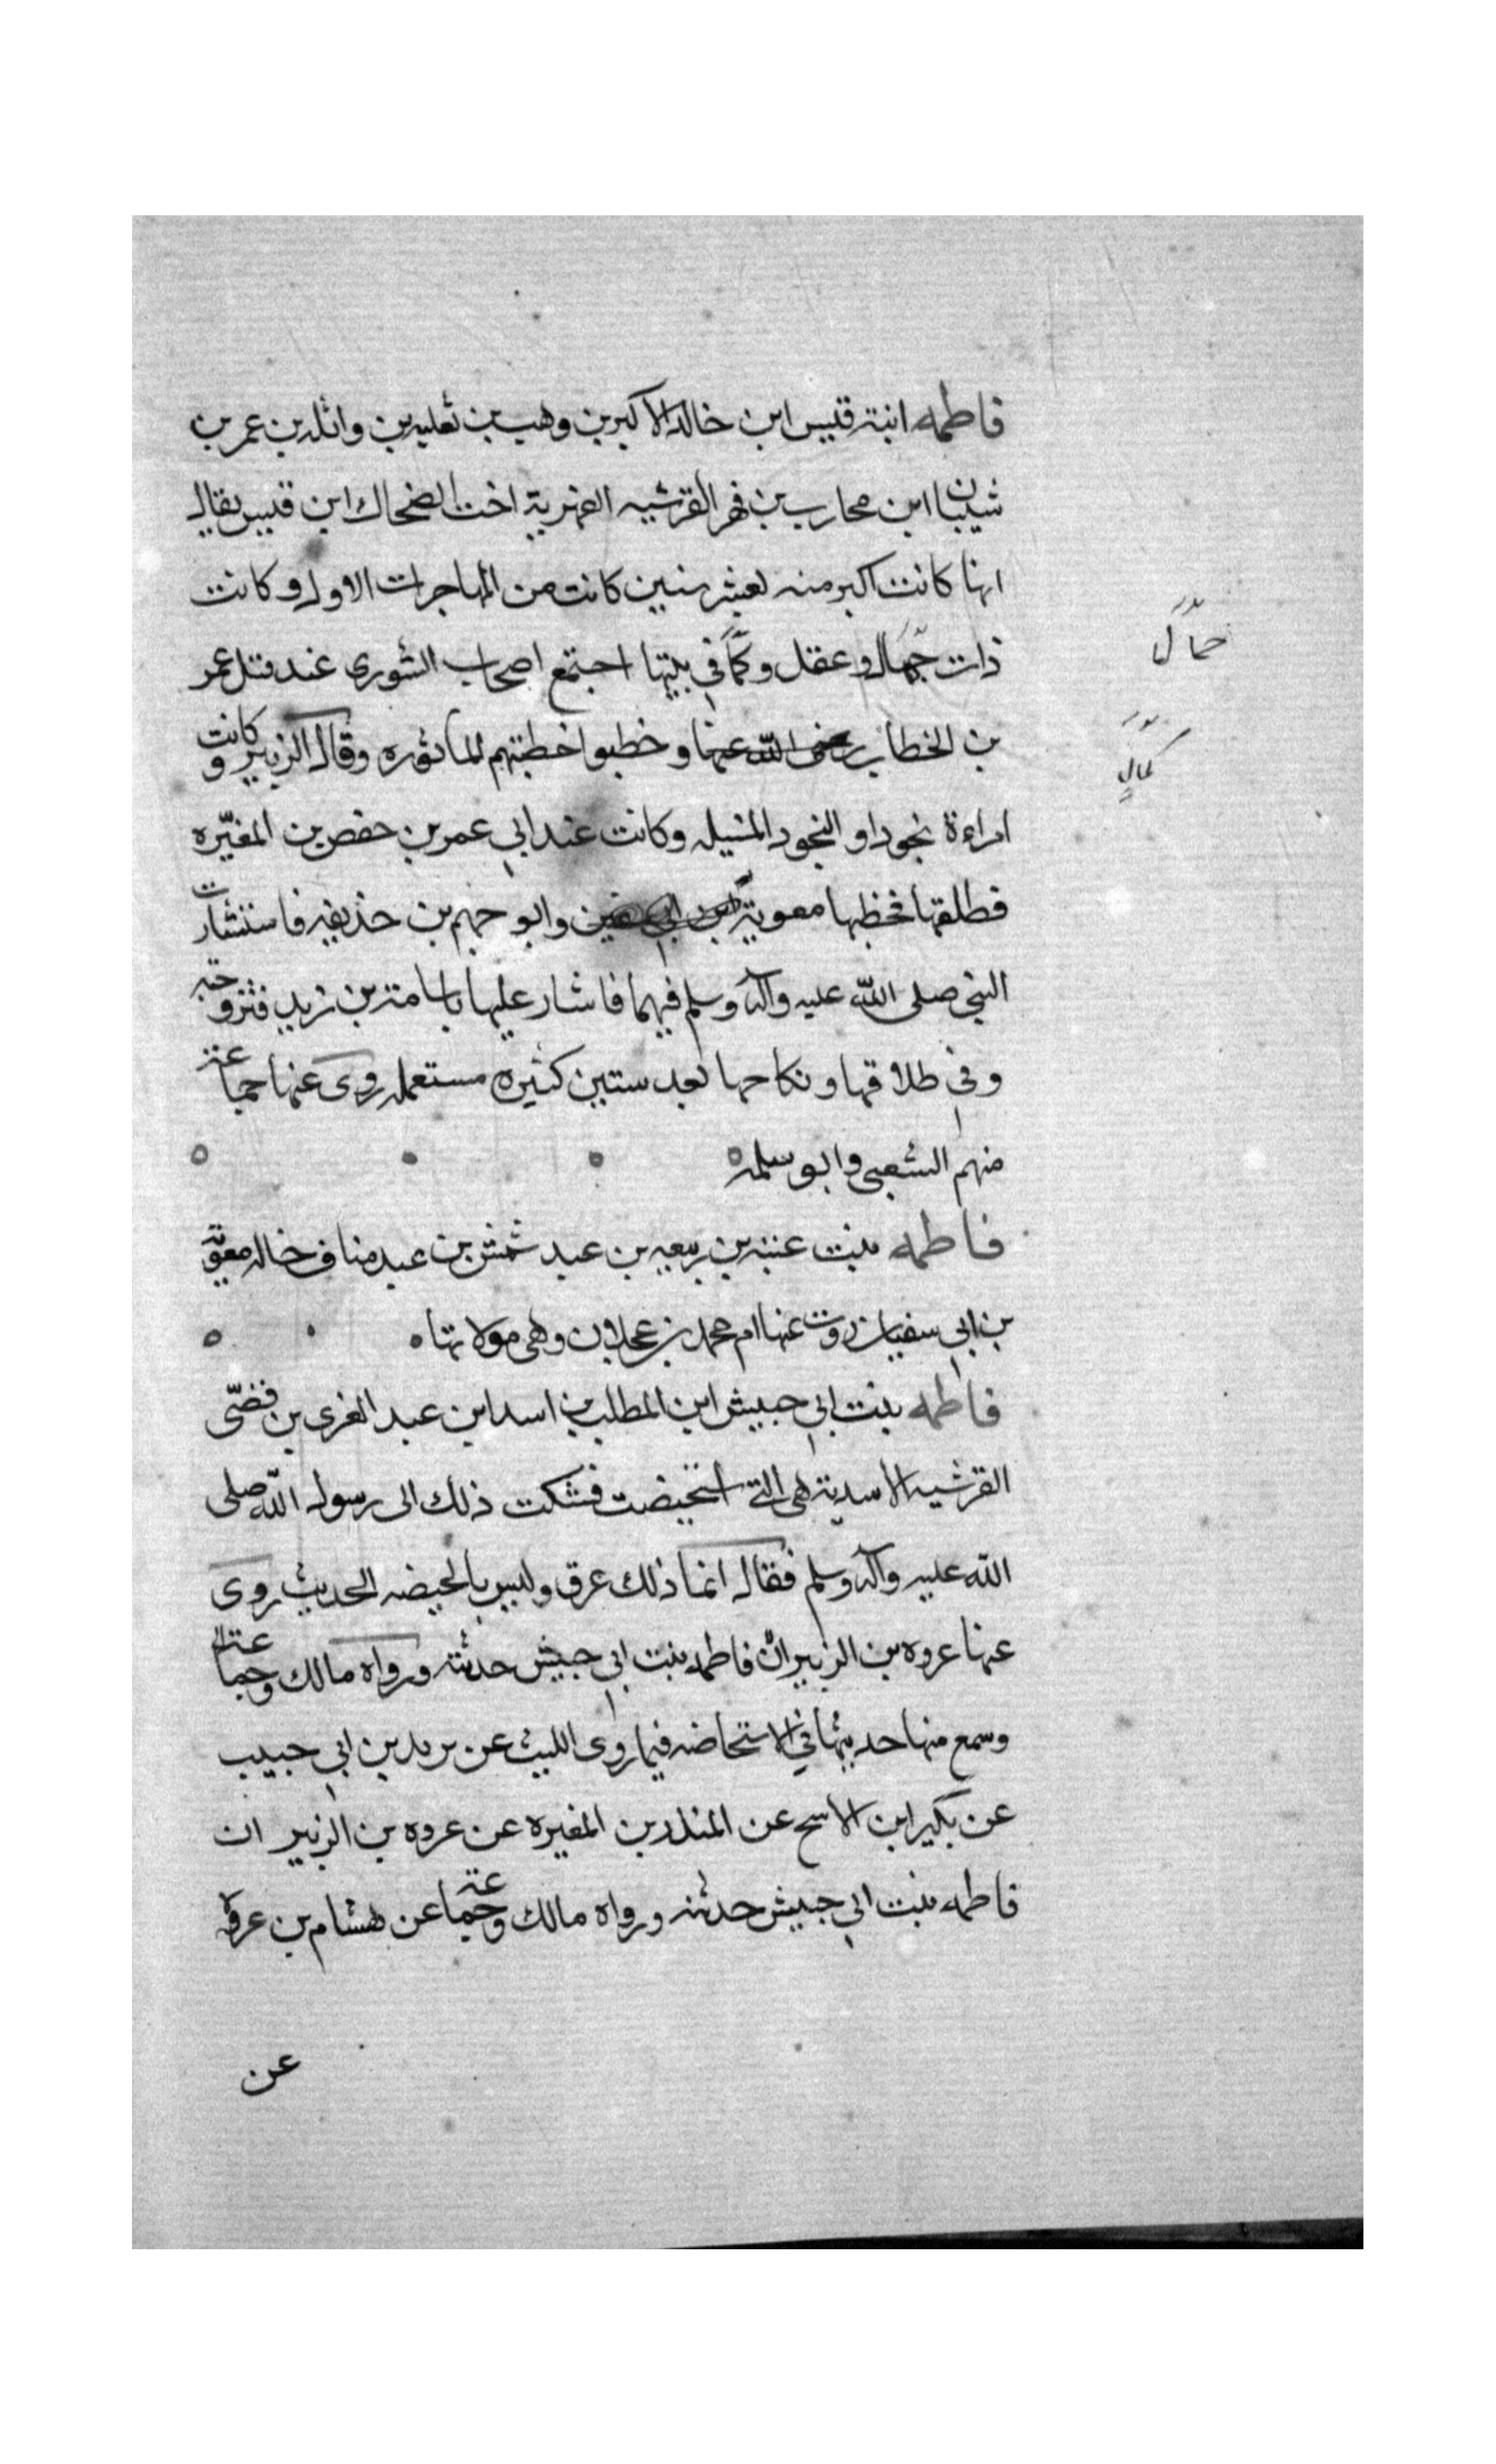 فاطمه ابنة قيس ابن خالد الاكبر بن وهب بن ثعلبه بن واثله بن عمر بن
شيبان ابن محارب بن فهر القرشيه الفهرية اخت الضحاك ابن قيس يقال
انها كانت اكبر منه بعشر سنين كانت من المهاجرات الاول وكانت
ذات جمال وعقل وكما في بيتها اجتمع اصحاب الشورى عند قتل عمر
جمال
بن الخطاب رضى الله عنها وخطبوا خطبتهم الماثوره وقال الزبير وكانت
كمال
امراءة نجودا والنجود المنيله وكانت عند ابي عمر بن حفص بن المغيّره
فطلقها فخطبها معوية وابو جهم بن حذيفه فاستشارت
النبي صلى الله عليه وآله وسلم فيهما فاشار عليها باسامة بن زيد فتزوجته
وفي طلاقها ونكاحها بعد سنين كثيره مستعمله روى عنها جماعة
منهم الشعبي وابو سلمه
فاطمه بنت عتبه بن ربيعه بن عبد شمس بن عبد مناف خاله معوية
بن ابي سفيان روت عنها ام محمد بن عجلان وهى مولاتها
فاطمه بنت ابي حبيش ابن المطلب بن اسد ابن عبد العزى بن قصّى
القرشيه الاسدية هى التي استحيضت فشكت ذلك الى رسول الله صلى
الله عليه وآله وسلم فقال انما ذلك عرق وليس بالحيضه الحديث روى
عنها عروه بن الزبير ان فاطمه بنت ابي حبيش حدثته ورواه مالك وجماعة
وسمع منها حديثها في الاستحاضه فيما روى الليث عن يزيد بن ابي حبيب
عن بكير ابن الاسح عن المنذر بن المغيره عن عروه بن الزبير ان
فاطمه بنت ابي حبيش حدثته ورواه مالك وجماعة عن هشام بن عروة
عن